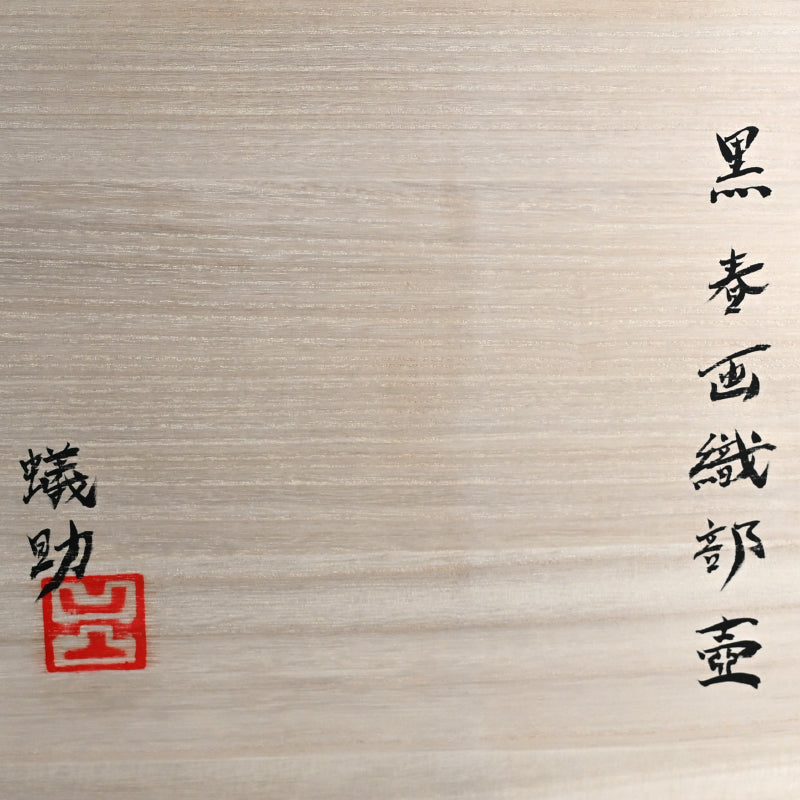 黒春画織部壺
蟻助